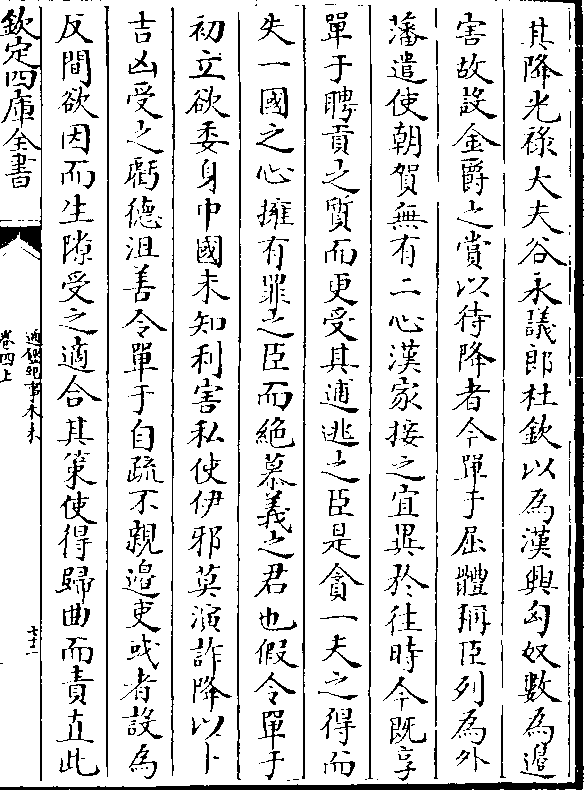 其降光禄大夫谷永議郎杜欽以為漢興匈奴數為邊
害故設金爵之賞以待降者今單于屈體稱臣列為外
藩遣使朝賀無有二心漢家接之宜異於往時今既享
單于聘貢之質而更受其逋逃之臣是貪一夫之得而
失一國之心擁有罪之臣而絶慕義之君也假令單于
初立欲委身中國未知利害私使伊邪莫演詐降以卜
吉凶受之虧德沮善令單于自疏不親邊吏或者設為
反間欲因而生隙受之適合其策使得歸曲而責直此
欽定四庫全書
通鑑紀事本末
卷四上